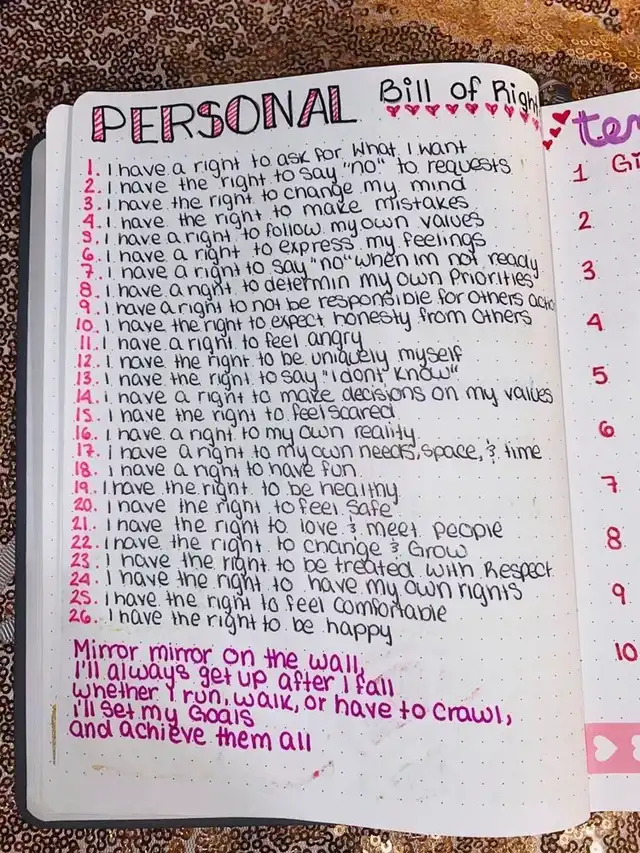 PERSONAL Bill of Right
1. I have a right to ask for what I want
2. I have the right to say "no" to requests
3. I have the right to change my mind
4. I have the right to make mistakes
5. I have a right to follow my own values
6. I have a right to express my feelings
7. I have a right to say "no" when im not ready
8. I have a right to determin my own Priorities
9. I have a right to not be responsible for others actio
10. I have the right to expect honesty from others
11. I have a right to feel angry
12. I have the right to be uniquely myself
13. I have the right to say "i dont know"
14. i have a right to make decisions on my values
15. I have the right to feel scared
16. I have a right to my own reality
17. I have a right to my own needs, space, & time
18. I have a right to have fun
19. I have the right to be healthy
20. I have the right to feel safe
21. I have the right to love & meet people
22. I have the right to change & Grow
23. I have the right to be treated with Respect
24. I have the right to have my own rights
25. I have the right to feel comfortable
26. I have the right to be happy
Mirror mirror on the wall,
I'll always get up after I fall
whether I run, walk, or have to crawl,
i'll set my Goals
and achieve them all
ten
1 Gi
2
3
4
5
6
7
8
9
10